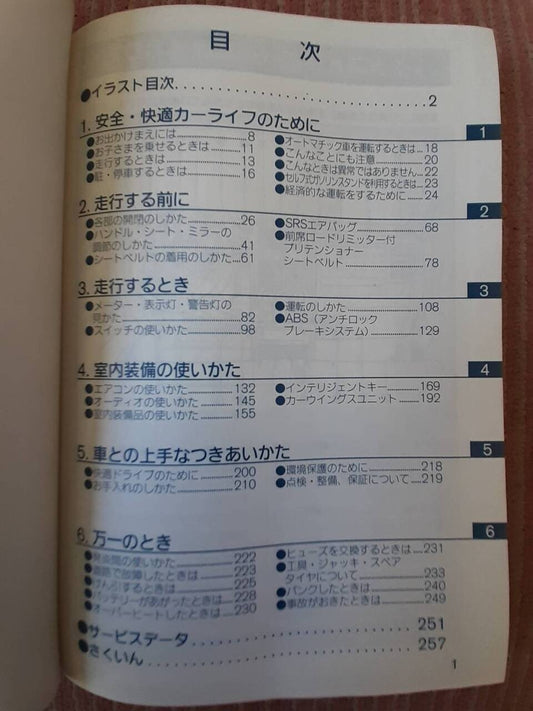 目 次
●イラスト目次 2
1. 安全・快適カーライフのために
1
●お出かけまえには 8
●お子さまを乗せるときは 11
●走行するときは 13
●駐・停車するときは 16
●オートマチック車を運転するときは 18
●こんなことにも注意 20
●こんなときは異常ではありません 22
●セルフ式ガソリンスタンドを利用するときは 23
●経済的な運転をするために 24
2. 走行する前に
2
●各部の開閉のしかた 26
●ハンドル・シート・ミラーの
調節のしかた 41
●シートベルトの着用のしかた 61
●SRSエアバッグ 68
●前席ロードリミッター付
プリテンショナー
シートベルト 78
3. 走行するとき
3
●メーター・表示灯・警告灯の
見かた 82
●スイッチの使いかた 98
●運転のしかた 108
●ABS（アンチロック
ブレーキシステム） 129
4. 室内装備の使いかた
4
●エアコンの使いかた 132
●オーディオの使いかた 145
●室内装備品の使いかた 155
●インテリジェントキー 169
●カーウイングスユニット 192
5. 車との上手なつきあいかた
5
●快適ドライブのために 200
●お手入れのしかた 210
●環境保護のために 218
●点検・整備、保証について 219
6. 万一のとき
6
●発炎筒の使いかた 222
●路上で故障したときは 223
●けん引するときは 225
●バッテリーがあがったときは 228
●オーバーヒートしたときは 230
●ヒューズを交換するときは 231
●工具・ジャッキ・スペア
タイヤについて 233
●パンクしたときは 240
●事故がおきたときは 249
●サービスデータ 251
●さくいん 257
1